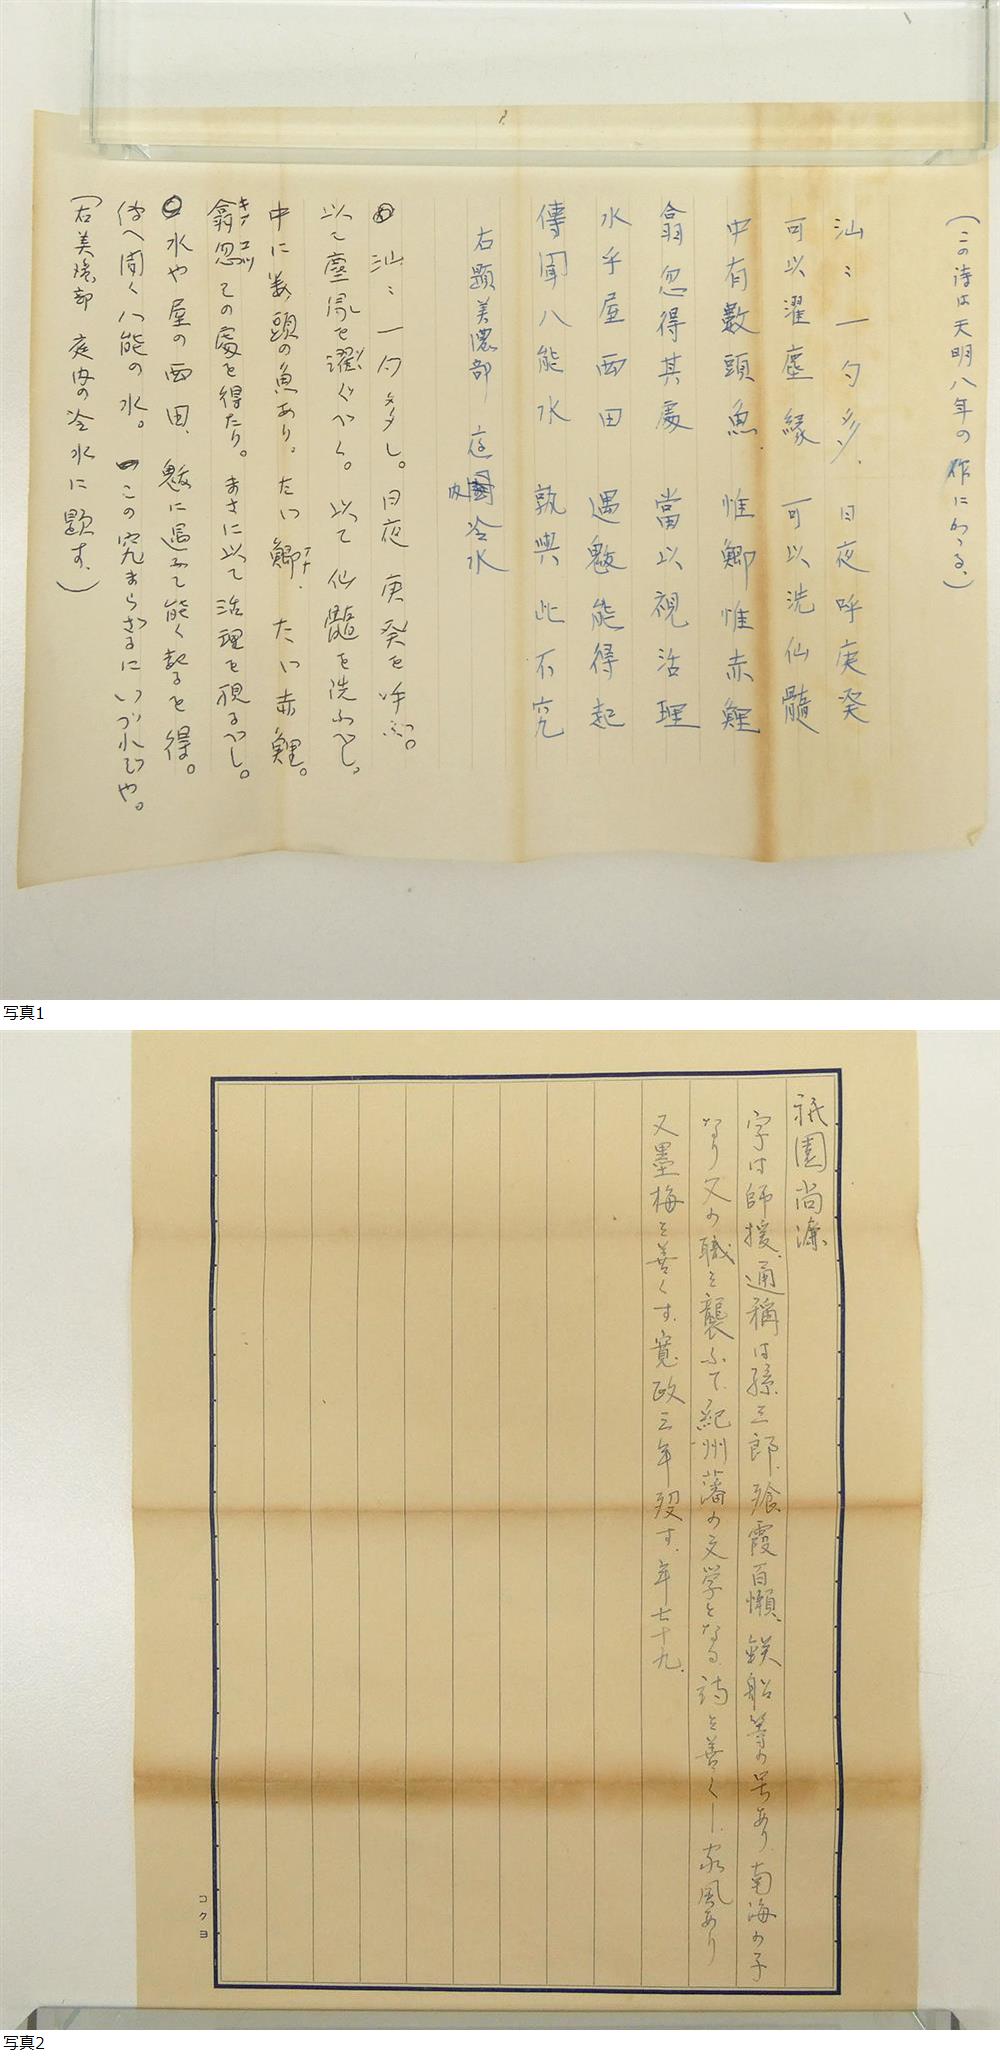 (この詩は天明八年の作にかゝる、)
汕〻一勺多、日夜呼庚癸
可以濯塵縁 可以洗仙髓
中有數頭魚、惟鯽惟赤鯉
翕忽得其處 當以視活理
水乎屋西田 遇 能得起
傳聞八能水 孰與此不究
右題美濃部 庭内冷水
汕〻一勺多し。日夜庚癸を呼ふ。
以て塵 を濯ぐべく。以て仙髓を洗ふべし。
中に数頭の魚あり。たい鯽 フナ、たい赤鯉。
翕忽 キフコツ 其の處を得たり。まさに以て活理を視るべし。
水や屋の西田、 に遇ふて能く起るを得。
伝へ聞く八能の水。この究まらざるにいづれぞや。
(右美濃部 庭内の冷水に題す、)
写真1
祇園尚濂
字は師援、通称は孫三郎、飱霞百懶、鉄船等の号あり、南海の子
なり父の職を襲ふて紀州藩の文学となる 詩を善くし、家風あり
又墨梅を善くす、寛政三年歿す、年七十九、
コクヨ
写真2